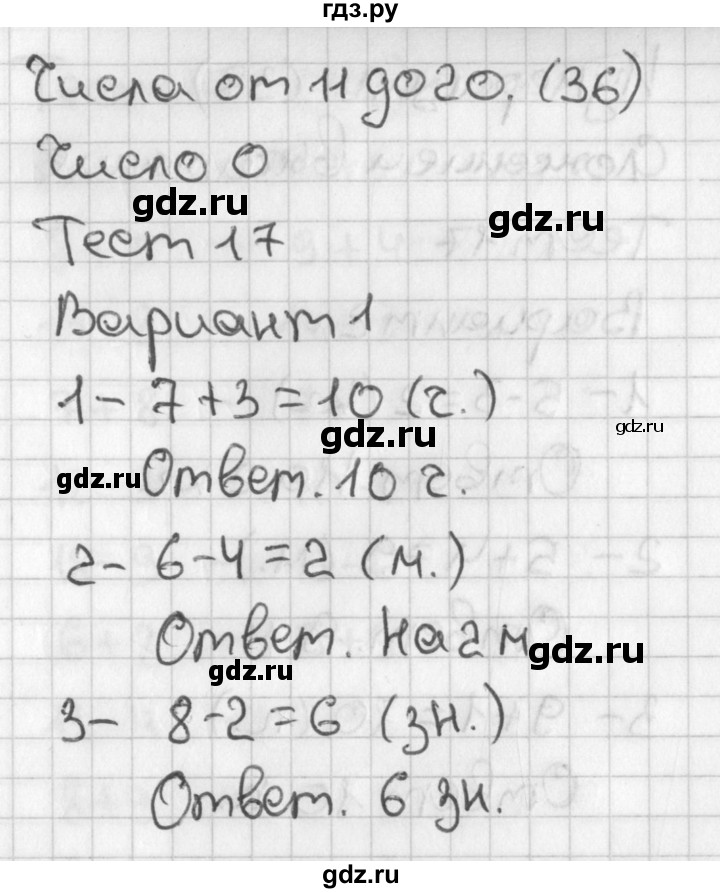 гдз.ру
Числа от 11 до 20. (36)
Число 0
gdz.ru
gdz.ru
Тест 17
Вариант 1
1- 7+3=10 (г.)
gdz.ru
gdz.ru
gdz.ru
Ответ. 10 г.
2- 6-4=2 (м.)
Ответ. На 2 м
gdz.ru
gdz.ru
3- 8-2=6 (зн.)
Ответ. 6 зн.
gdz.ru